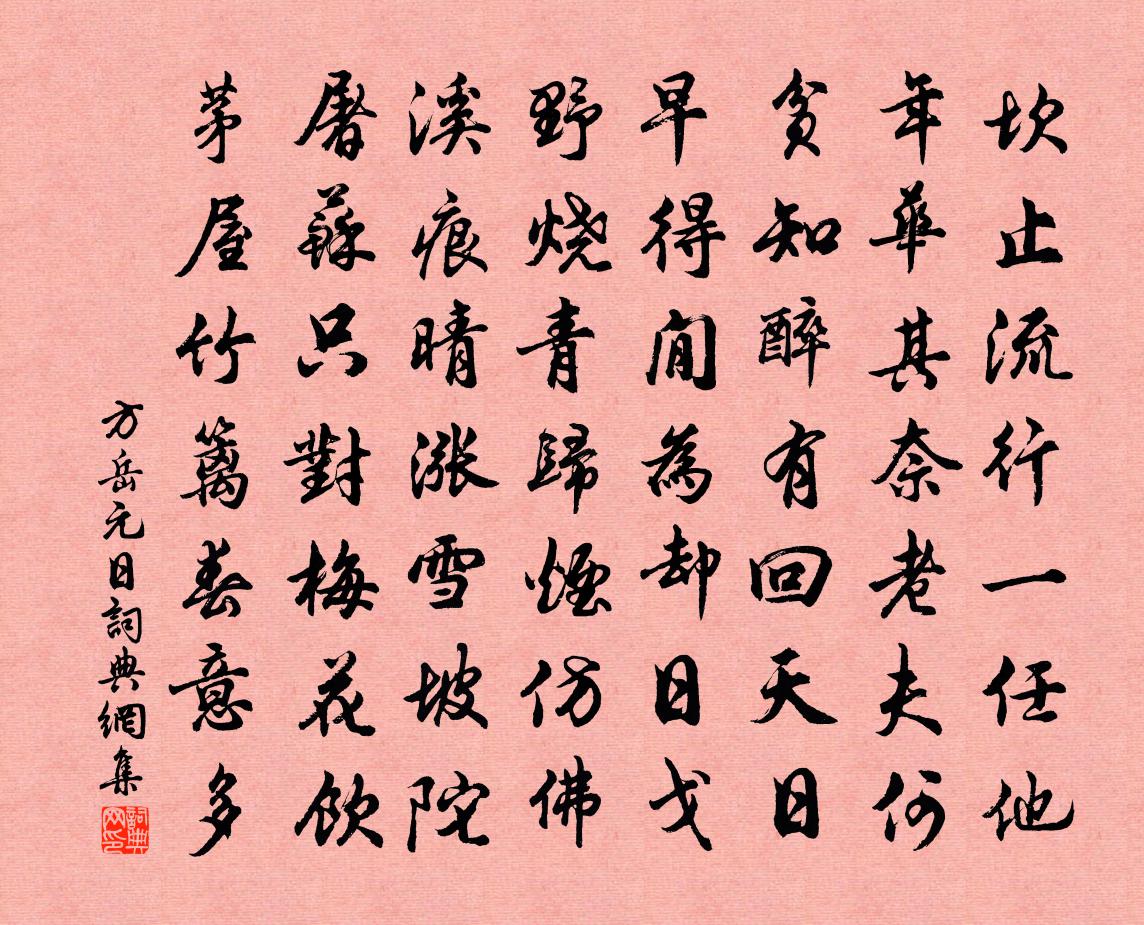 坎止流行一任他
年華其奈老夫何
貧知醉有回天日
早得閒為却日戈
野燒青歸煙仿佛
溪痕晴漲雪坡陀
屠蘇只對梅花飲
茅屋竹籬春意多
方岳元日詞典網集
詞典网印